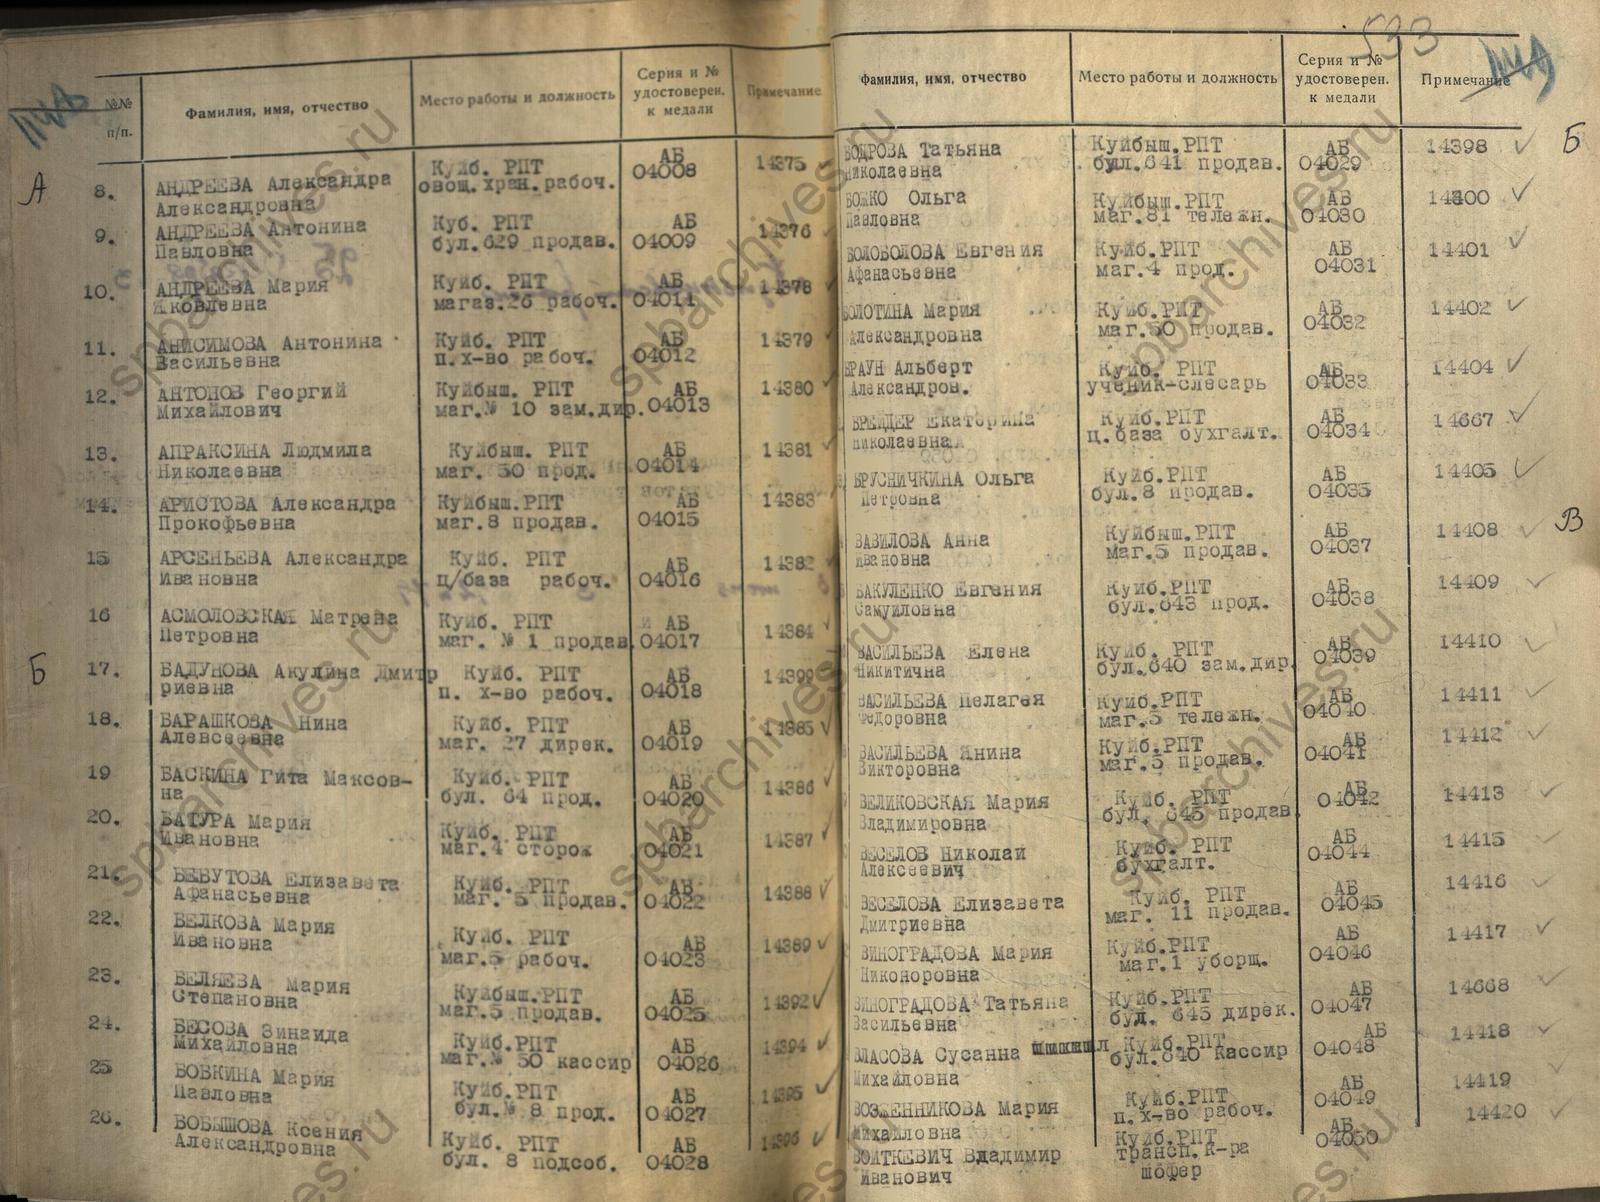 №№ п/п.
Фамилия, имя, отчество
Место работы и должность
Серия и № удостоверен. к медали
Примечание
А
8. АНДРЕЕВА Александра Куйб. РПТ АБ 14375
Александровна овощ.хран.рабоч. 04008
9. АНДРЕЕВА Антонина Куб. РПТ АБ 14376
Павловна бул.629 продав. 04009
10. АНДРЕЕВА Мария Куйб. РПТ АБ 14378
Яковлевна магаз.26 рабоч. 04011
11. АНИСИМОВА Антонина Куйб. РПТ АБ 14379
Васильевна п.х-во рабоч. 04012
12. АНТОНОВ Георгий Куйбыш. РПТ АБ 14380
Михайлович маг.№ 10 зам.дир. 04013
13. АПРАКСИНА Людмила Куйбыш. РПТ АБ 14381
Николаевна маг. 50 прод. 04014
14. АРИСТОВА Александра Куйбыш.РПТ АБ 14383
Прокофьевна маг.8 продав. 04015
15 АРСЕНЬЕВА Александра Куйб. РПТ АБ 14382
Ивановна ц/база рабоч. 04016
16 АСМОЛОВСКАЯ Матрена Куйб. РПТ АБ 14384
Петровна маг. № 1 продав. 04017
Б
17. БАДУНОВА Акулина Дмитр Куйб. РПТ АБ 14399
риевна п. х-во рабоч. 04018
18. БАРАШКОВА Нина Куйб. РПТ АБ 14385
Алевсеевна маг. 27 дирек. 04019
19 БАСКИНА Гита Максов- Куйб. РПТ АБ 14386
на бул. 64 прод. 04020
20. БАТУРА Мария Куйб. РПТ АБ 14387
Ивановна маг.4 сторож 04021
21. БЕБУТОВА Елизавета Куйб. РПТ АБ 14388
Афанасьевна маг. 5 продав. 04022
22. БЕЛКОВА Мария Куйб. РПТ АБ 14389
Ивановна маг.5 рабоч. 04023
23. БЕЛЯЕВА Мария Куйбыш.РПТ АБ 14392
Степановна маг.5 продав. 04025
24. БЕСОВА Зинаида Куйб.РПТ АБ 14394
Михайловна маг.№ 50 кассир 04026
25 БОБКИНА Мария Куйб.РПТ АБ 14395
Павловна бул.№ 8 прод. 04027
26. БОБЫШОВА Ксения Куйб. РПТ АБ 14396
Александровна бул. 8 подсоб. 04028
533
Фамилия, имя, отчество
Место работы и должность
Серия и № удостоверен. к медали
Примечание
Б
БОДРОВА Татьяна Куйбыш.РПТ АБ 14398
Николаевна бул.641 продав. 04029
БОЖКО Ольга Куйбыш.РПТ АБ 14400
Павловна маг.81 тележн. 04030
БОЛОБОЛОВА Евгения Куйб.РПТ АБ 14401
Афанасьевна маг.4 прод. 04031
БОЛОТИНА Мария Куйб.РПТ АБ 14402
Александровна маг.50 продав. 04032
БРАУН Альберт Куйб. РПТ АБ 14404
Александров. ученик-слесарь 04033
БРЕЙДЕР Екатерина Куйб.РПТ АБ 14667
Николаевна ц.база бухгалт. 04034
БРУСНИЧКИНА Ольга Куйб.РПТ АБ 14405
Петровна бул.8 продав. 04035
В
ВАВИЛОВА Анна Куйбыш.РПТ АБ 14408
Ивановна Маг.5 продав. 04037
ВАКУЛЕНКО Евгения Куйб.РПТ АБ 14409
Самуиловна бул.643 прод. 04038
ВАСИЛЬЕВА Елена Куйб. РПТ АБ 14410
Никитична бул.640 зам.дир. 04039
ВАСИЛЬЕВА Пелагея Куйб.РПТ АБ 14411
Федоровна маг.5 тележн. 04040
ВАСИЛЬЕВА Янина Куйб.РПТ АБ 14412
Викторовна маг.5 продав. 04041
ВЕЛИКОВСКАЯ Мария Куйб. РПТ АБ 14413
Владимировна бул. 645 продав 04042
ВЕСЕЛОВ Николай Куйб. РПТ АБ 14415
Алексеевич бухгалт. 04044
ВЕСЕЛОВА Елизавета Куйб. РПТ АБ 14416
Дмитриевна маг. 11 продав. 04045
ВИНОГРАДОВА Мария Куйб.РПТ АБ 14417
Никоноровна маг.1 уборщ. 04046
ВИНОГРАДОВА Татьяна Куйб.РПТ АБ 14668
Васильевна бул. 645 дирек. 04047
ВЛАСОВА Сусанна Куйб.РПТ АБ 14418
Михайловна бул.640 кассир 04048
ВОЗЖЕННИКОВА Мария Куйб.РПТ АБ 14419
Михайловна п.х-во рабоч. 04049
ВОЙТКЕВИЧ Владимир Куйб.РПТ АБ 14420
Иванович трансп.к-ра 04050
шофер
spbarchives.ru